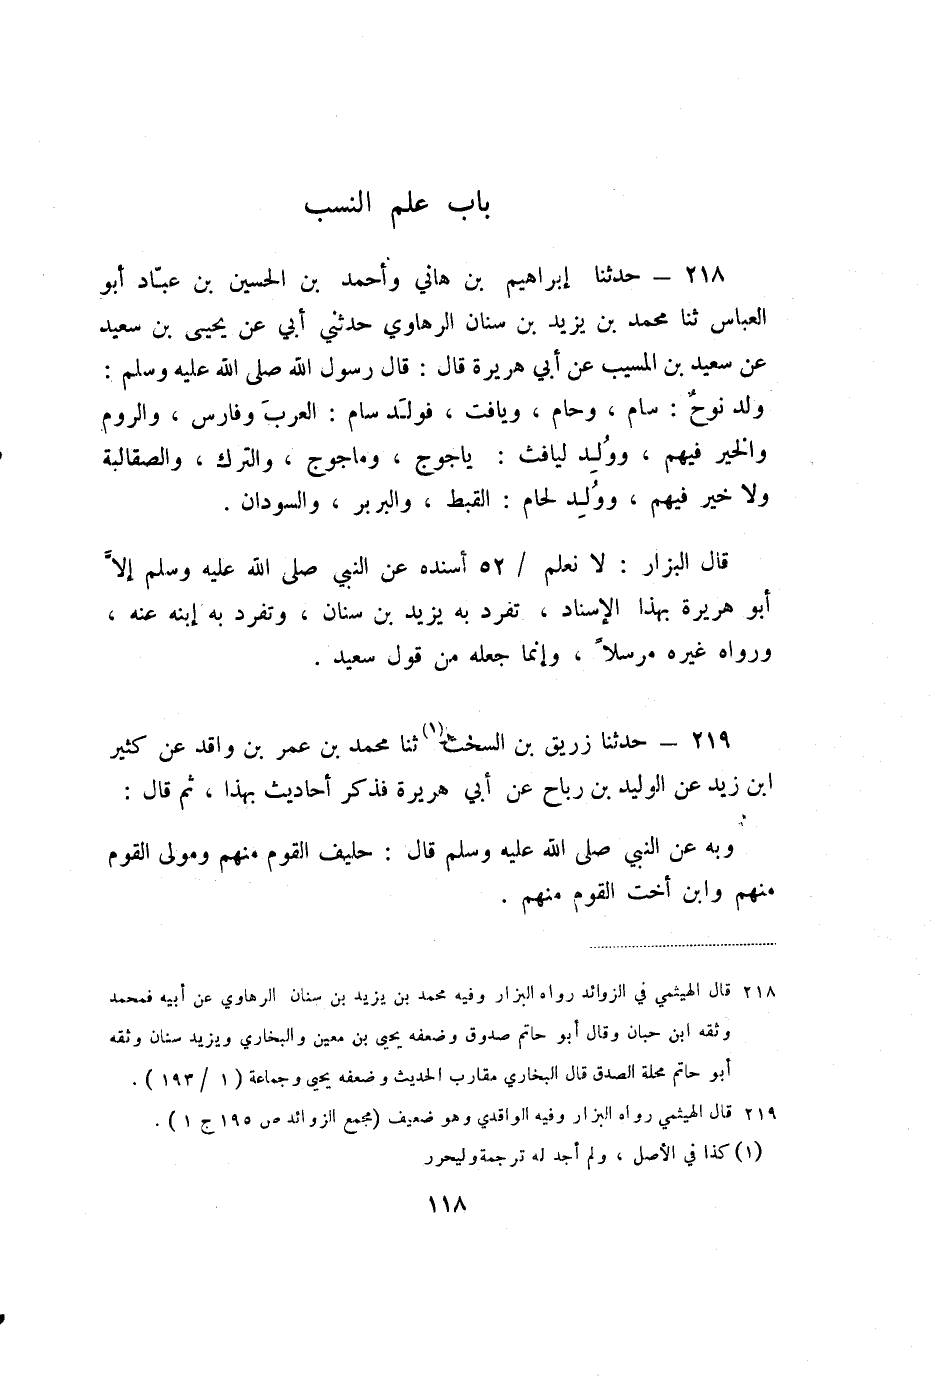 باب علم النسب
٢١٨ – حدثنا إبراهيم بن هاني وأحمد بن الحسين بن عبّاد أبو
العباس ثنا محمد بن يزيد بن سنان الرهاوي حدثني أبي عن يحيى بن سعيد
عن سعيد بن المسيب عن أبي هريرة قال : قال رسول الله صلى الله عليه وسلم :
ولد نوحٌ : سام ، وحام ، ويافت ، فولَد سام : العربَ وفارس ، والروم
والخير فيهم ، ووُلِد ليافث : ياجوج ، وماجوج ، والترك ، والصقالبة
ولا خير فيهم ، ووُلِد لحام : القبط ، والبربر ، والسودان .
قال البزار : لا نعلم / ٥٢ أسنده عن النبي صلى الله عليه وسلم إلاَّ
أبو هريرة بهذا الإسناد ، تفرد به يزيد بن سنان ، وتفرد به إبنه عنه ،
ورواه غيره مرسلاً ، وإنما جعله من قول سعيد .
٢١٩ – حدثنا زريق بن السخت(١) ثنا محمد بن عمر بن واقد عن كثير
ابن زيد عن الوليد بن رباح عن أبي هريرة فذكر أحاديث بهذا ، ثم قال :
وبه عن النبي صلى الله عليه وسلم قال : حليف القوم منهم ومولى القوم
منهم وابن أخت القوم منهم .
٢١٨ قال الهيثمي في الزوائد رواه البزار وفيه محمد بن يزيد بن سنان الرهاوي عن أبيه فمحمد
وثقه ابن حبان وقال أبو حاتم صدوق وضعفه يحيى بن معين والبخاري ويزيد سنان وثقه
أبو حاتم محلة الصدق قال البخاري مقارب الحديث وضعفه يحيى وجماعة ( ١ / ١٩٣ ) .
٢١٩ قال الهيثمي رواه البزار وفيه الواقدي وهو ضعيف (مجمع الزوائد ص ١٩٥ ج ١ ) .
(١) كذا في الأصل ، ولم أجد له ترجمة وليحرر
١١٨